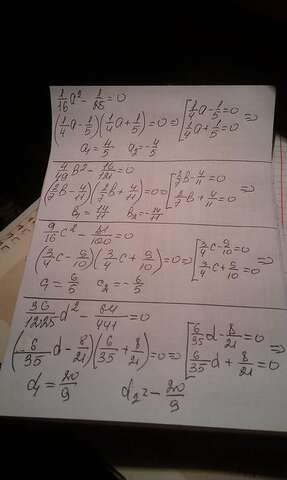 1/16 a² - 1/25 = 0
(1/4 a - 1/5)(1/4 a + 1/5) = 0 => [1/4 a - 1/5 = 0 =>
1/4 a + 1/5 = 0
a₁ = 4/5 a₂ = -4/5
4/49 b² - 16/121 = 0
(2/7 b - 4/11)(2/7 b + 4/11) = 0 => [2/7 b - 4/11 = 0 =>
2/7 b + 4/11 = 0
b₁ = 14/11 b₂ = -14/11
9/16 c² - 81/100 = 0
(3/4 c - 9/10)(3/4 c + 9/10) = 0 => [3/4 c - 9/10 = 0 =>
3/4 c + 9/10 = 0
c₁ = 6/5 c₂ = -6/5
36/1225 d² - 64/441 = 0
(6/35 d - 8/21)(6/35 + 8/21) = 0 => [6/35 d - 8/21 = 0 =>
6/35 d + 8/21 = 0
d₁ = 20/9 d₂ = -20/9